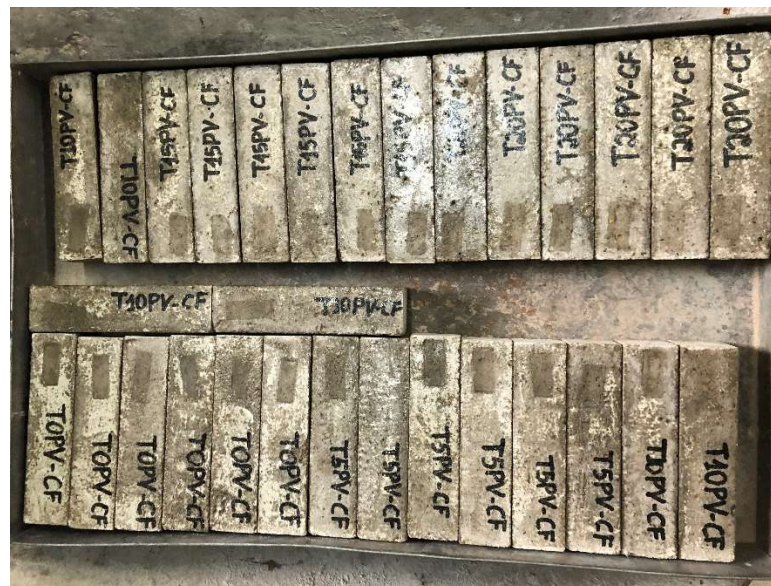 T10PV-CF
T10PV-CF
T15PV-CF
T15PV-CF
T15PV-CF
T15PV-CF
T15PV-CF
T15PV-CF
T20PV-CF
T20PV-CF
T20PV-CF
T20PV-CF
T20PV-CF
T10PV-CF
T10PV-CF
T0PV-CF
T0PV-CF
T0PV-CF
T0PV-CF
T0PV-CF
T0PV-CF
T5PV-CF
T5PV-CF
T5PV-CF
T5PV-CF
T5PV-CF
T5PV-CF
T10PV-CF
T10PV-CF